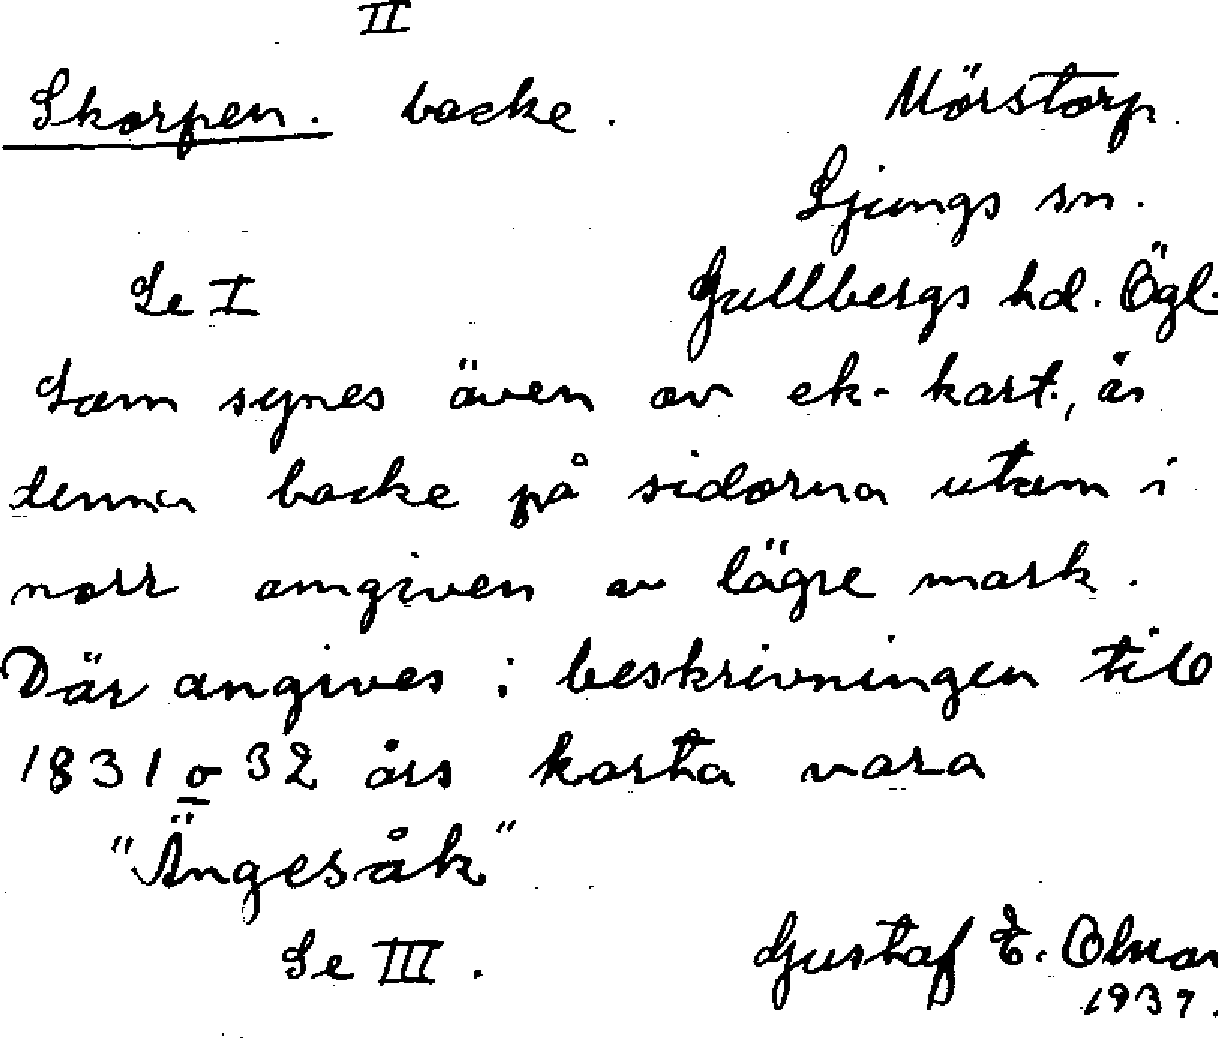 II
Skorpen. backe. Mörstorp.
Ljungs sn.
Se I Gullbergs hd. Ögl.
Som synes även av ek-kart., är
denna backe på sidorna utom i
norr omgiven av lägre mark.
Där angives i beskrivningen till
1831 o 32 års karta vara
"Ängesåk"
Se III. Gustaf E.
1937.